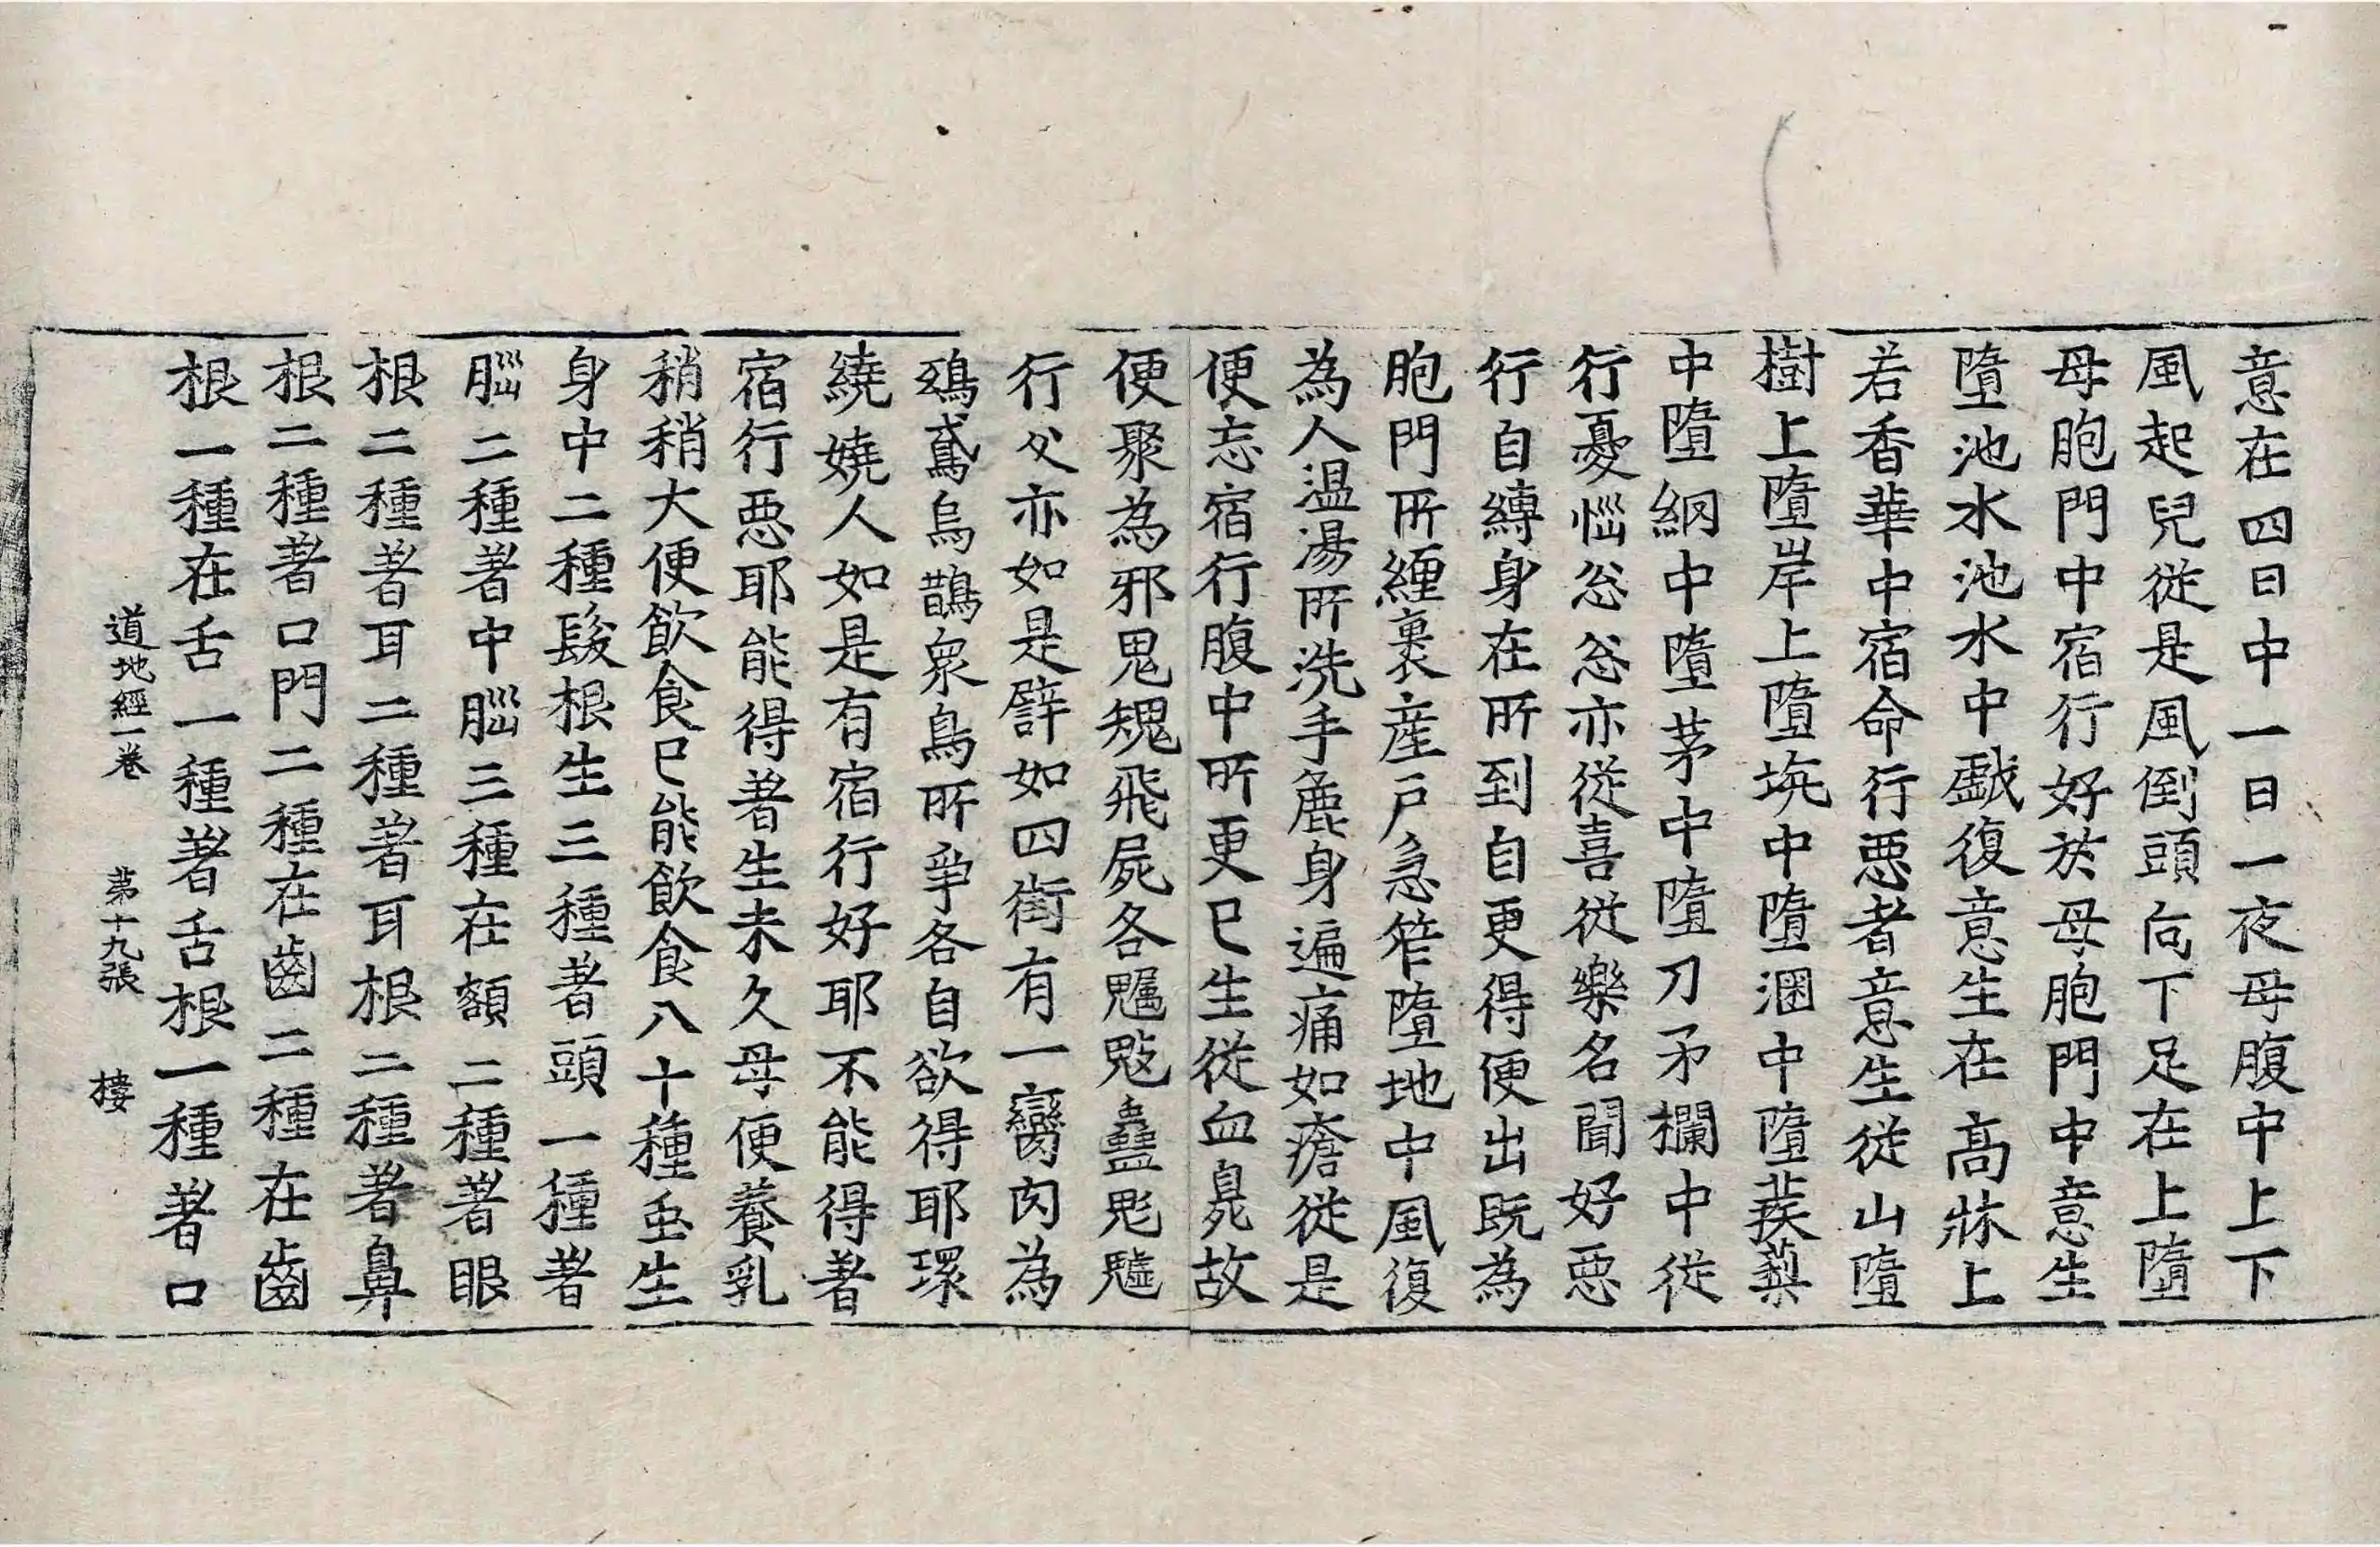 意在四日中一日一夜母腹中上下
風起兒從是風倒頭向下足在上墮
母胞門中宿行好於母胞門中意生
墮池水池水中戲復意生在高牀上
若香華中宿命行惡者意生從山墮
樹上墮岸上墮坑中墮溷中墮蒺蔾
中墮網中墮茅中墮刀矛欄中從
行憂惱忩忩亦從喜從樂名聞好惡
行自縛身在所到自更得便出既為
胞門所纏裹産戶急笮墮地中風復
為人温湯所洗手麁身遍痛如瘡從是
便忘宿行腹中所更已生從血臭故
便聚為邪鬼魑飛屍各魘鬾蠱鬽魖
行父亦如是譬如四街有一臠肉為
鵄鳶烏鵲衆鳥所爭各自欲得耶環
繞嬈人如是有宿行好耶不能得著
宿行惡耶能得著生未久母便養乳
稍稍大便飲食已能飲食八十種虫生
身中二種髮根生三種著頭一種著
腦二種著中腦三種在額二種著眼
根二種著耳二種著耳根二種著鼻
根二種著口門二種在齒二種在齒
根一種在舌一種著舌根一種著口
道地經一卷 第十九張 樓